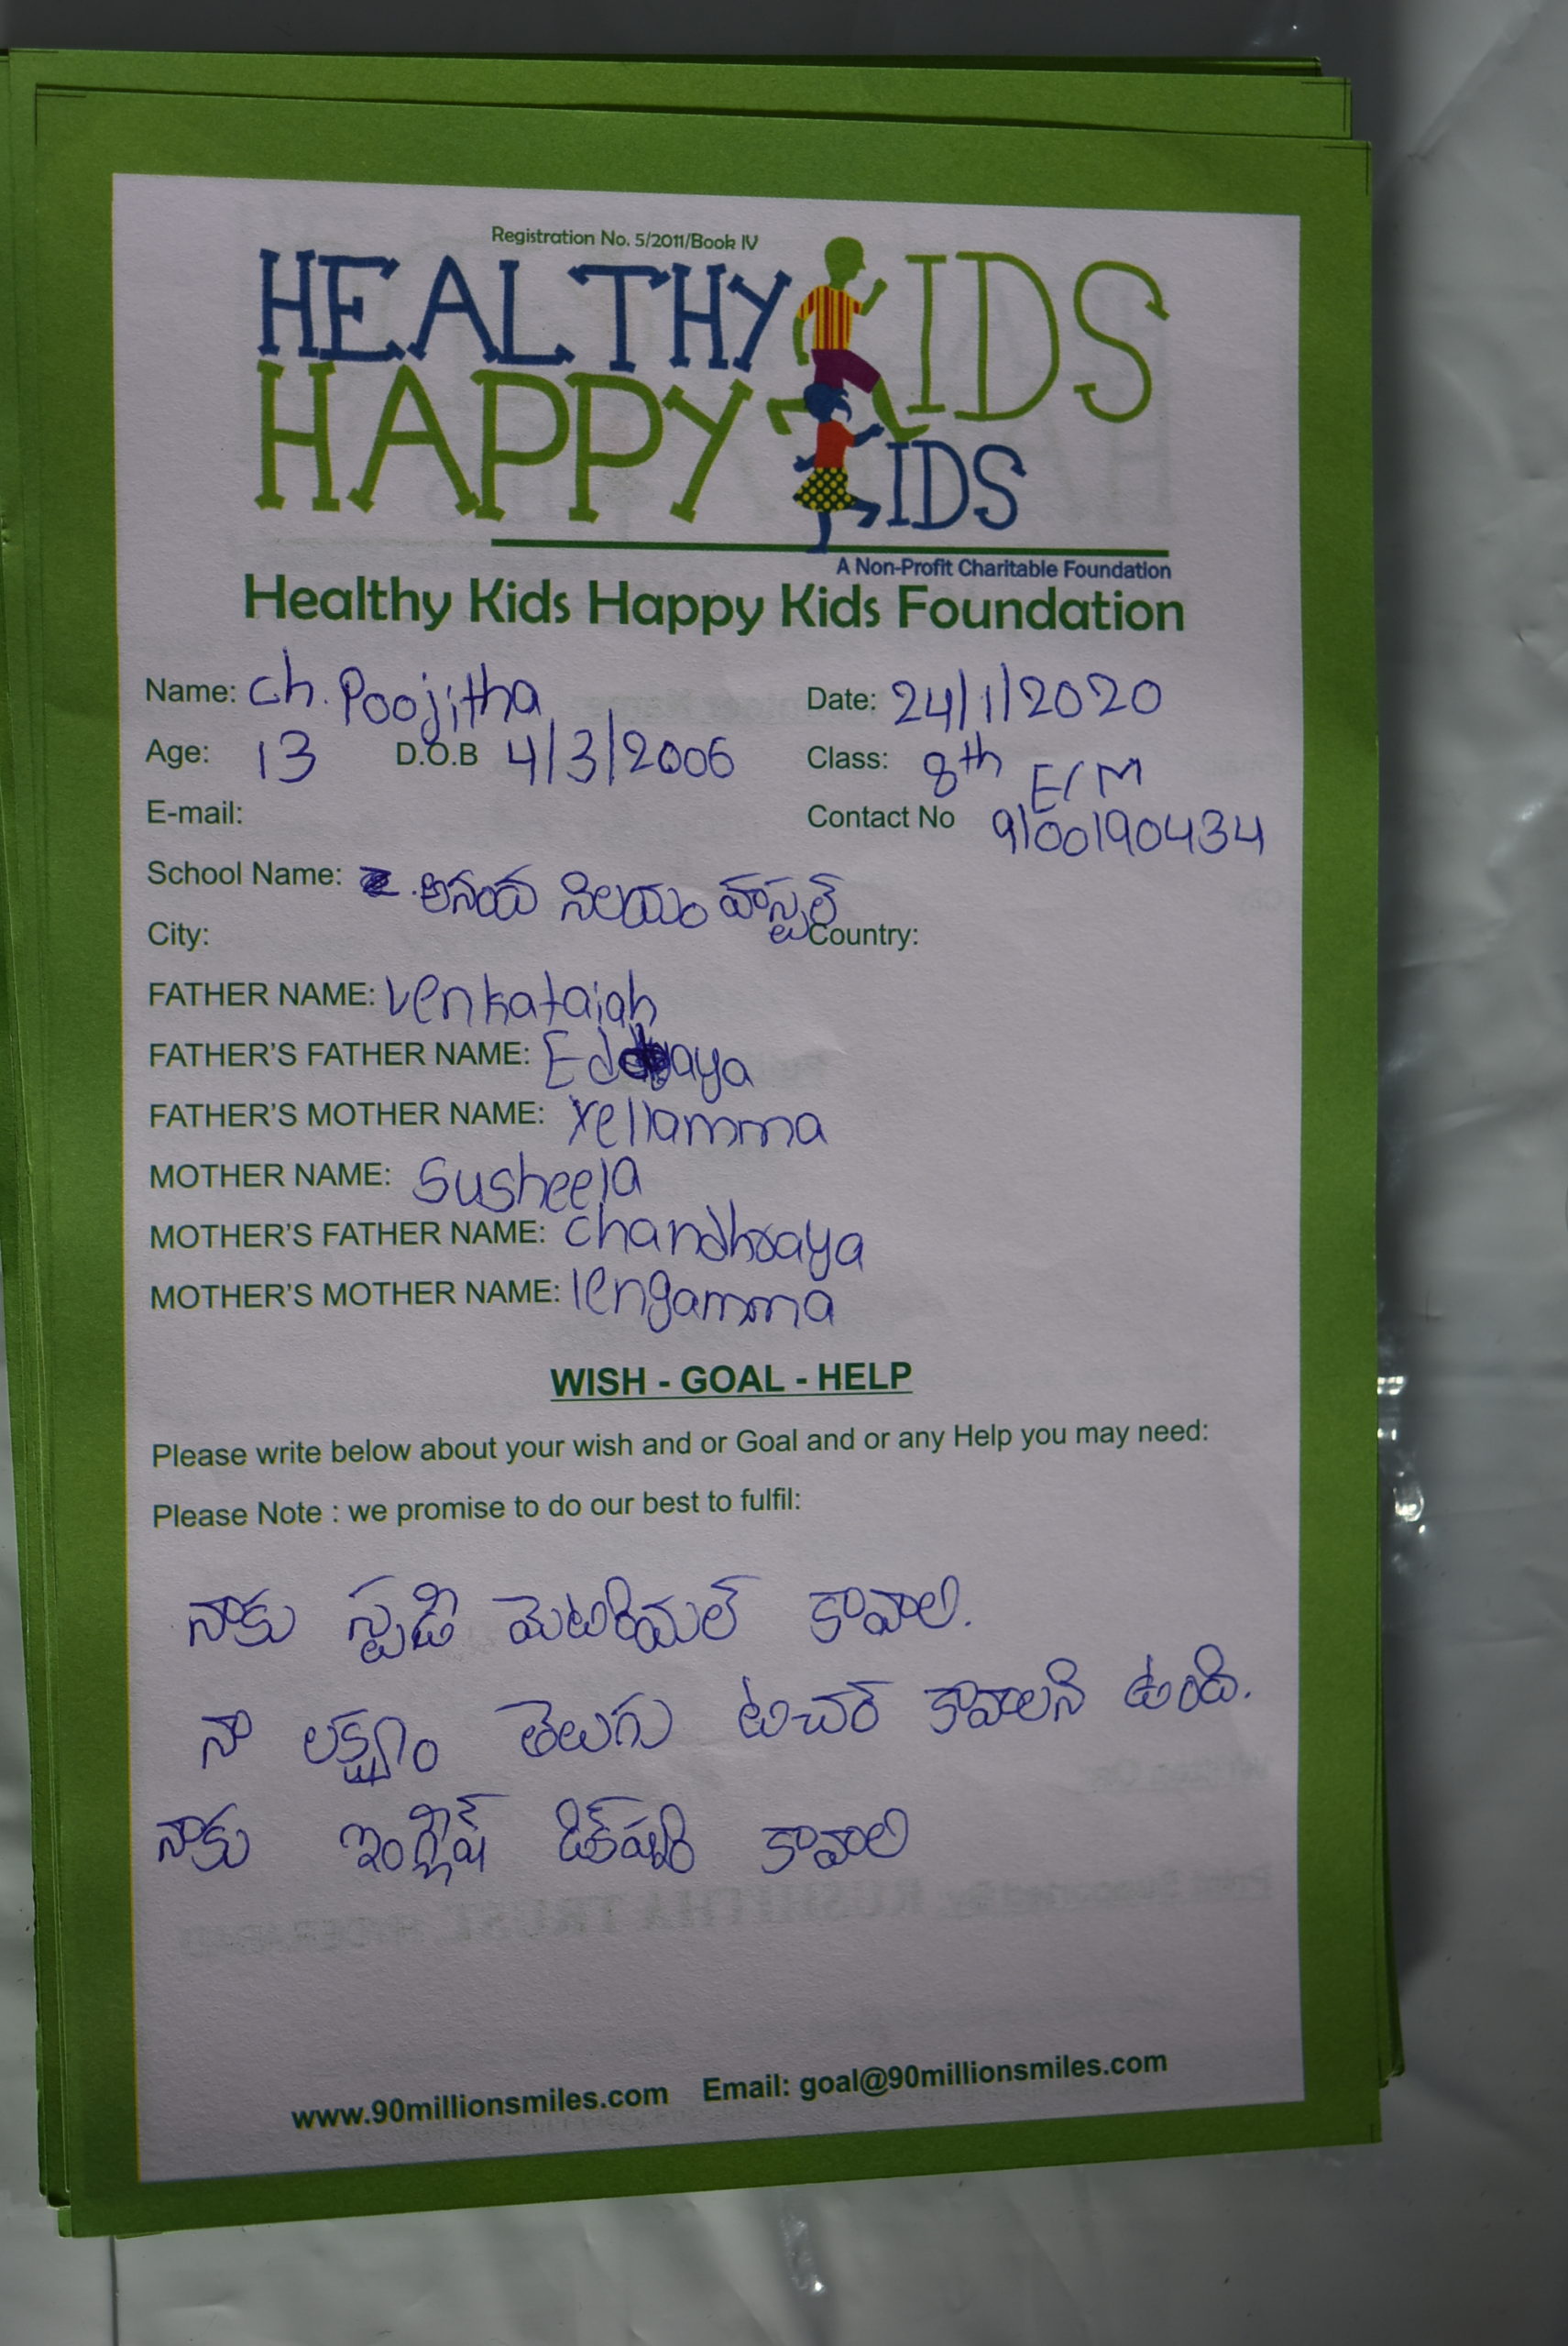 Registration No. 5/2011/Book IV
HEALTHY KIDS
HAPPY KIDS
A Non-Profit Charitable Foundation
Healthy Kids Happy Kids Foundation
Name: Ch. Poojitha Date: 24/1/2020
Age: 13 D.O.B 4/3/2006 Class: 8th E/M
E-mail: Contact No 9100190434
School Name: అనంద నిలయం హాస్టల్
City: Country:
FATHER NAME: Venkataiah
FATHER'S FATHER NAME:
FATHER'S MOTHER NAME: Yellamma
MOTHER NAME: Susheela
MOTHER'S FATHER NAME: Chandhraya
MOTHER'S MOTHER NAME: lengamma
WISH - GOAL - HELP
Please write below about your wish and or Goal and or any Help you may need:
Please Note : we promise to do our best to fulfil:
నాకు స్టడి మెటిరియల్ కావాలి.
నా లక్ష్యం తెలుగు టీచర్ కావాలని ఉంది.
నాకు ఇంగ్లీష్ డిక్షనరి కావాలి
www.90millionsmiles.com Email: goal@90millionsmiles.com